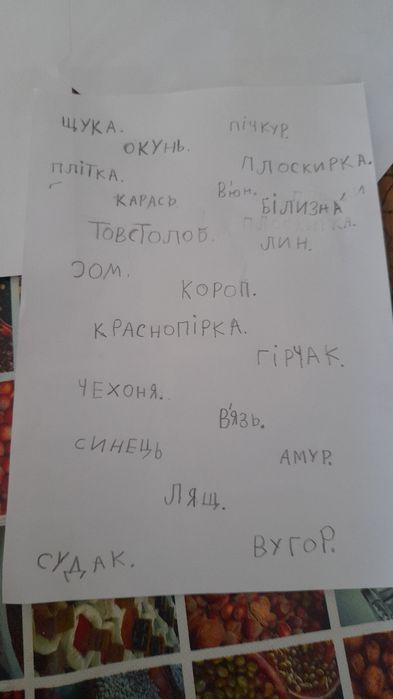 ЩУКА.
ПІЧКУР.
ОКУНЬ.
ПЛОСКИРКА.
ПЛІТКА.
В'юн.
КАРАСЬ
БІЛИЗНА
ПЛОСКИРКА.
ТОВСТОЛОБ.
ЛИН.
СОМ.
КОРОП.
КРАСНОПІРКА.
ГІРЧАК.
ЧЕХОНЯ.
В'ЯЗЬ.
СИНЕЦЬ
АМУР.
ЛЯЩ.
ВУГОР.
СУДАК.